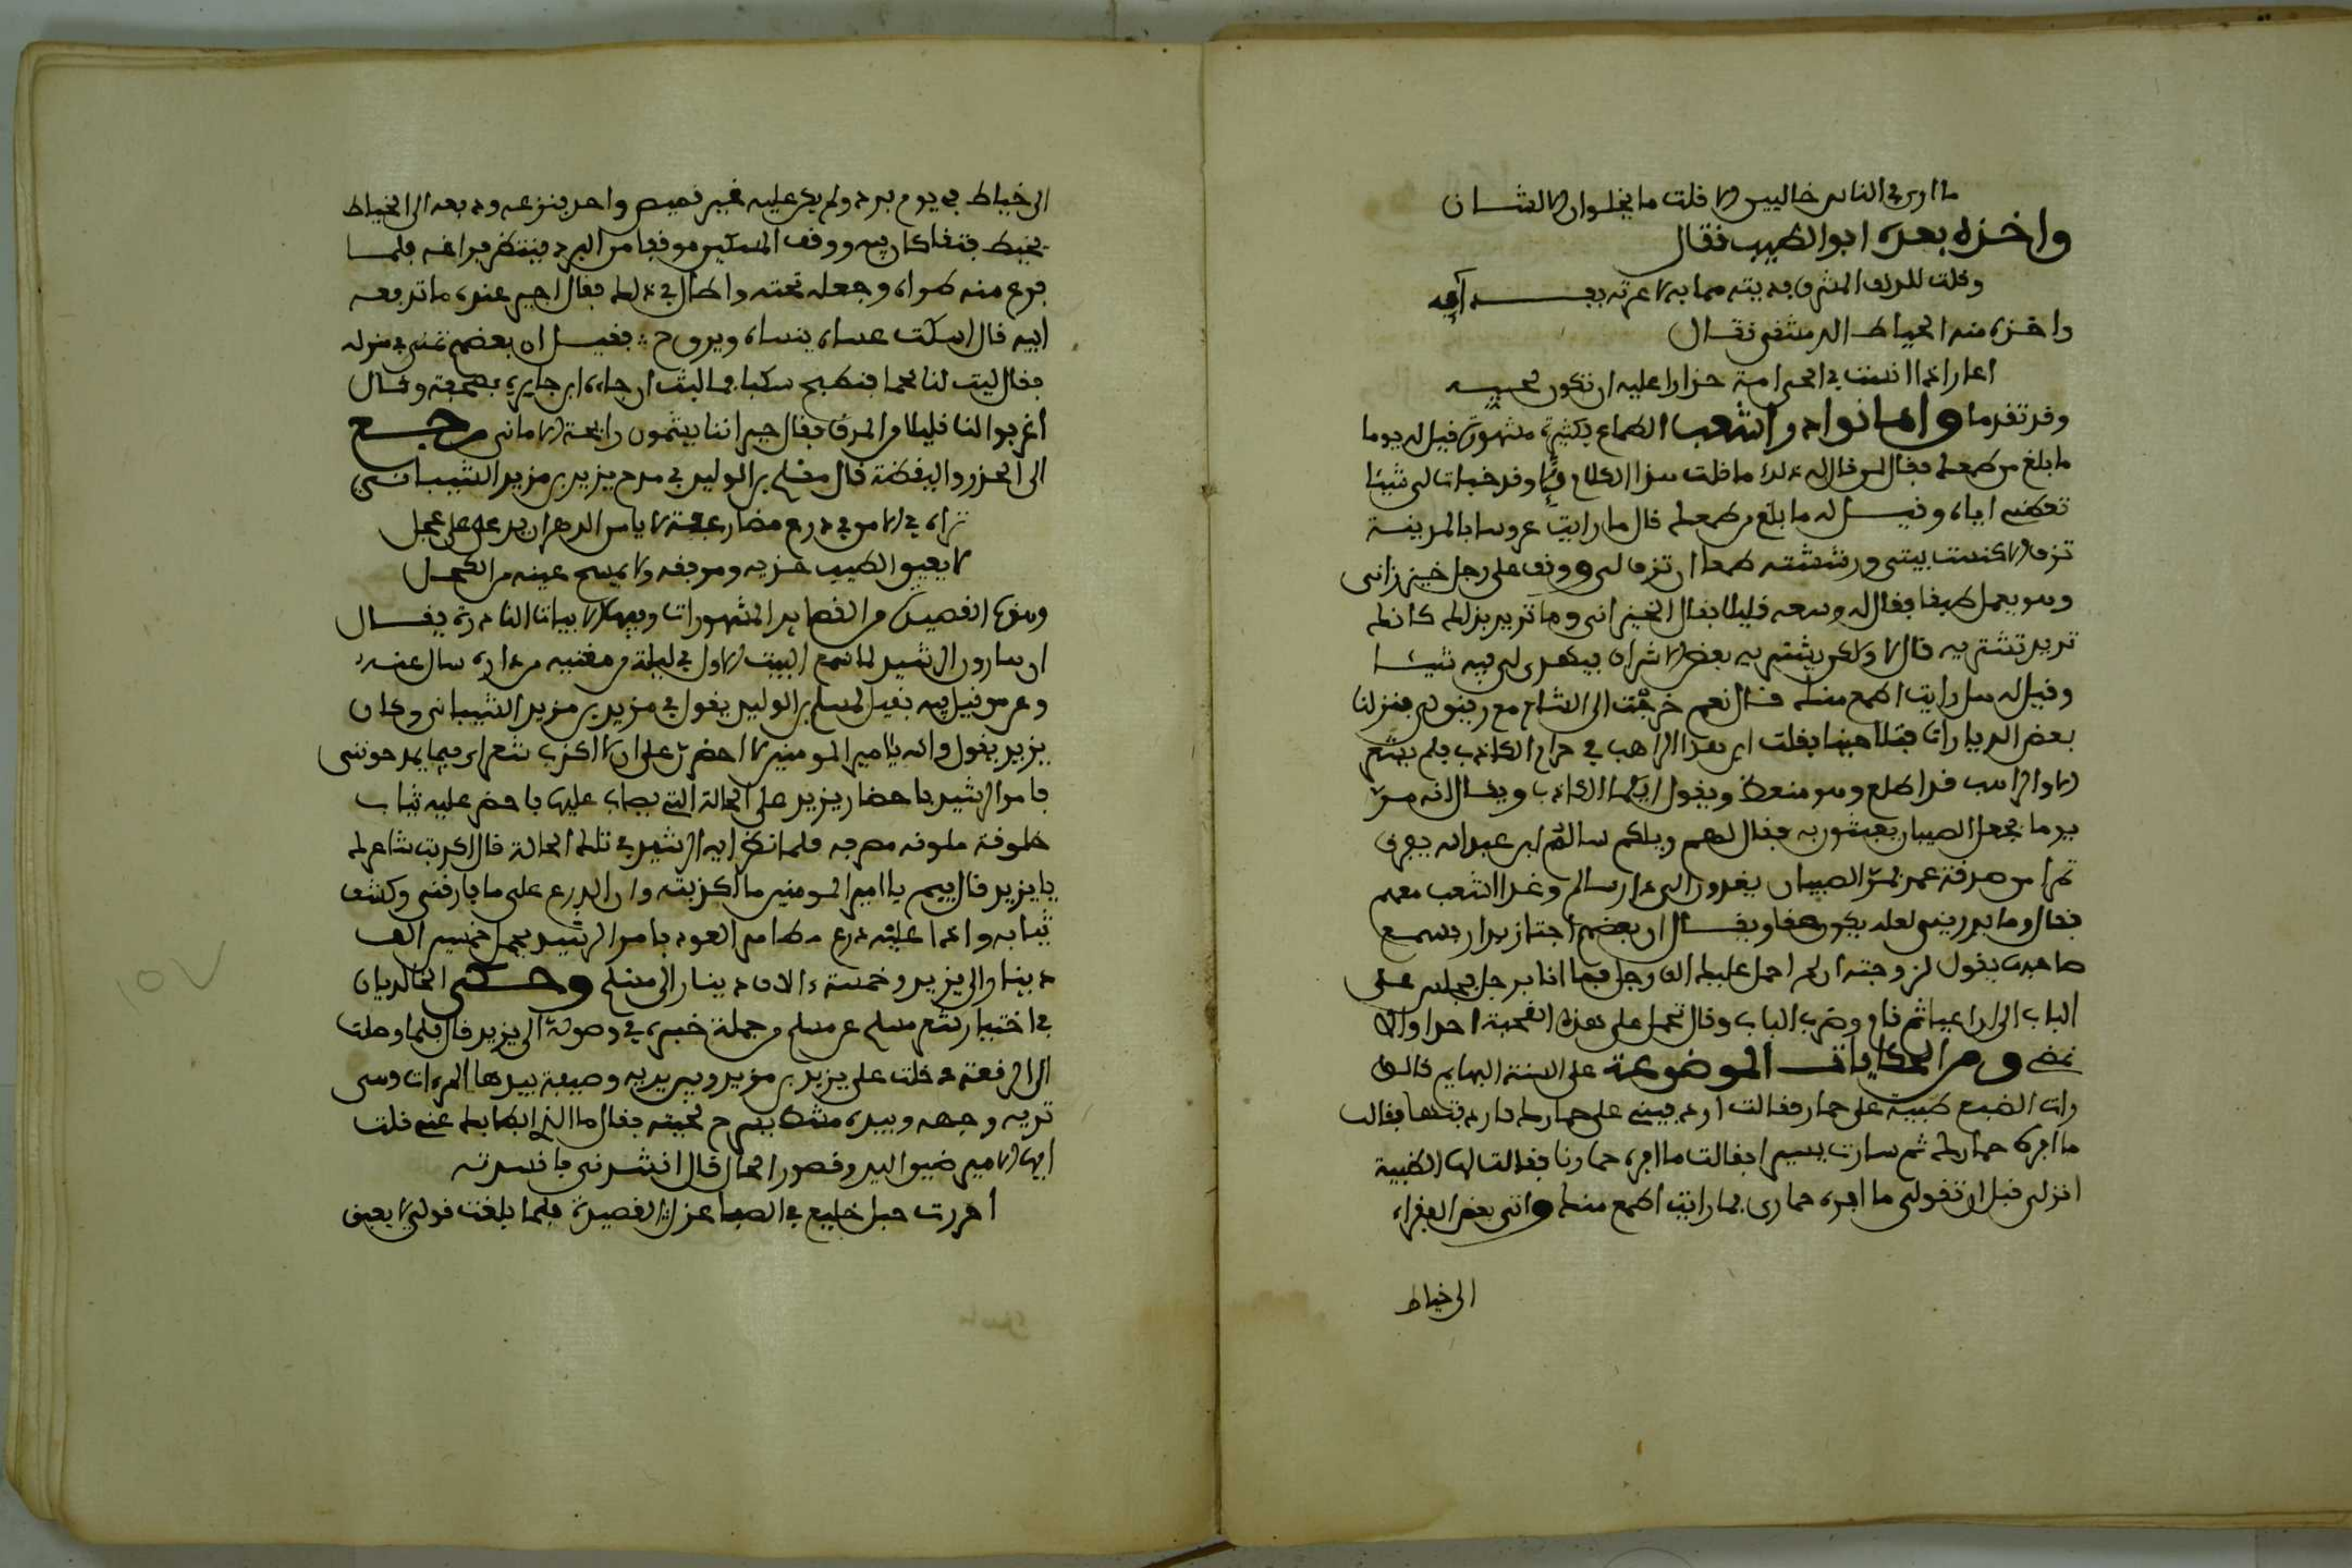 ما ارى في الناس خاليين ولا قلت ما يخلوان الا لشان
واخذه بعده ابو الطيب فقال
وقلت للدنف المشرق فديته مما به لاغرته بفـــدآيه
واخذه منه الخياط الدمشقي فقال
اغار اذا انست في الحي امة حذارا عليه ان تكون لحبـه
وقد تقدما واما نوادر اشعب الطماع فكثيرة مشهورة قيل له يوما
ما بلغ من طمعك فقال للي قال له ذلك ما قلت هذا الكلام وقد خبات لي شيئا
تعطيني اياه وقيــل له ما بلغ من طمعك قال ما رايت عروسا بالمدينة
تزف الا كنست بيتي ورششته طمعا ان تزف لي ووقف على رجل خيزراني
وهو يعمل طبقا فقال له وسعه قليلا فقال الخيزراني وما تريد بذلك كانك
تريد تشتريه قال لا ولكن يشتريه بعض الاشراف فيهدى لي فيه شيئــا
وقيل له هل رايت اطمع منك قــال نعم خرجت الى الشام مع رفيق لي فنزلنا
بعض الديارات فتلاحينا فقلت اير هذا الراهب في حرام الكاذب فلم نشعر
الا والراهب قد اطلع وهو منعظ ويقول ايكما الكاذب ويقــال انه مر
يوما فجعل الصبيان يعبثون به فقال لهم ويلكم سالم ابن عبد الله يفرق
تمرا من صدقة عمر فمر الصبيان يعدون الى دار سالم وعدا اشعب معهم
فقال وما يدريني لعله يكون حقا ويقــال ان بعضهم اجتاز بدار فسمع
صاحبها يقول لزوجته ان لم احمل عليك الف رجل فما انا برجل فجلس على
الباب الى ان اعيا ثم قام وضرب الباب وقال تحمل على هذه القحبة احدا والا
نمضي ومن الحكايات الموضوعة على السنة البهايم قالوا
رات الضبع ظبية على حمار فقالت اردفيني على حمارك فاردفتها فقالت
ما افره حمارك ثم سارت يسيرا فقالت ما افره حمارنا فقالت لها الظبية
انزلي قبل ان تقولي ما افره حماري فما رايت اطمع منك واتى بعض الفقراء
الى خياط
الى خياط في يوم برد ولم يكن عليه غير قميص واحد فنزعه ودفعه الى الخياط
يخيط فتقا كان فيه ووقف المسكين موقفا من البرد فينتظر فراغه فلمــا
فرغ منه طواه وجعله تحته واطال في ذلك فقال اجير عنده ما تدفعه
اليه قال اسكت عساه ينساه ويروح فقيــل ان بعضهم تمنى في منزله
فقال ليت لنا لحما فنطبخ سكباجا فما لبث ان جاءه ابن جاره بصحفة وقــال
اغرفوا لنا قليلا من المرق فقال جيراننا يشمون رايحة الاماني رجــع
الى الحزر واليقظة قال مسلم بن الوليد في مدح يزيد بن مزيد الشيبانــي
تراه في الامن في درع مضاعفة لا يامن الدهر ان يدعى على عجل
لا يعبق الطيب خديه ومرفقه ولا يمسح عينيه من الكحــل
وهذه القصيدة من القصايد المشهورات وفيها الابيات النادرة يقــال
ان هارون الرشيد لما سمع البيت الاول في ليلة من مغنيه من داره سال عنــه
وعن من قيل فيه فقيل لمسلم بن الوليد يقول في مزيد بن مزيد الشيباني وكان
يزيد يقول والله يا امير المومنين لا احضر على ان لا اكذب شعراى فيما يمدحونني
فامر الرشيد باحضار يزيد على الحالة التي يصاب عليها فاحضر عليه ثياب
خلوقة ملونه مضرجه فلما نظر اليه الرشيد في تلك الحالة قال اكذبت شاعرك
يا يزيد قال فيم يا امير المومنين ما اكذبته وان الدرع على ما فارقتني وكشف
ثيابه واذا عليه درع فامر الرشيد بحمل خمسين الف
دينار الى يزيد وخمسة ءالاف دينار الى مسلم وحــكى الخالديان
في اختيار شعر مسلم عن مسلم من جملة خبره في وصوله الى يزيد قال فلما وصلت
الى الرقة دخلت على يزيد بن مزيد وبين يديه وصيفة بيدها المرءات وهي
تريه وجهه وبيده مشط يسرح لحيته فقال ما الذي ابطا بك عني قلت
ايها الامير ضيق اليد وقصور الحال قال انشدني فانشدته
اجررت حبل خليع في الصبا غزل القصيدة فلما بلغت قولي لا يعبق